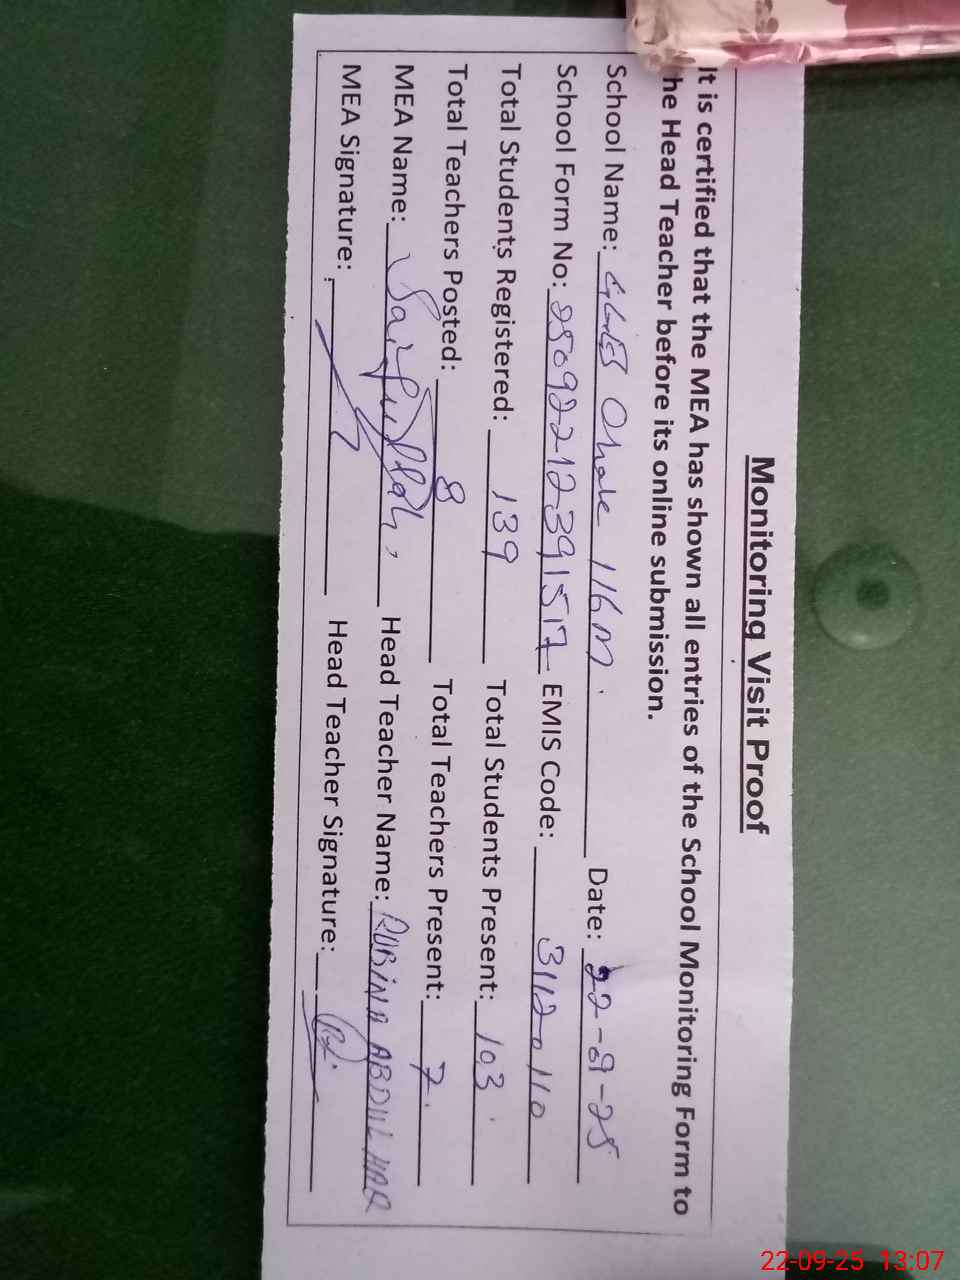 Monitoring Visit Proof
It is certified that the MEA has shown all entries of the School Monitoring Form to
he Head Teacher before its online submission.
School Name: Chak 116 M. Date: 22-09-25
School Form No: 25092212391517 EMIS Code: 31120110
Total Students Registered: 139 Total Students Present: 103
Total Teachers Posted: 8 Total Teachers Present: 7.
MEA Name: Saifullah, Head Teacher Name: RUBINA ABDUL HAQ
MEA Signature: Head Teacher Signature:
22-09-25 13:07